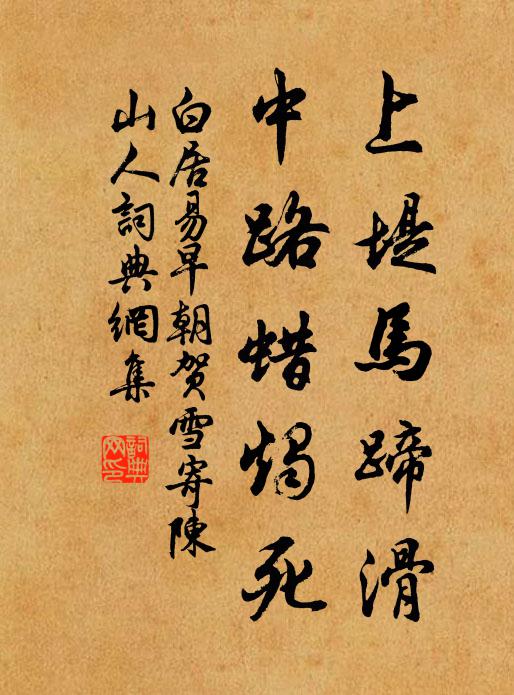 上堤馬蹄滑
中路蜡燭死
白居易早朝賀雪寄陳
山人詞典網集
詞典
网印